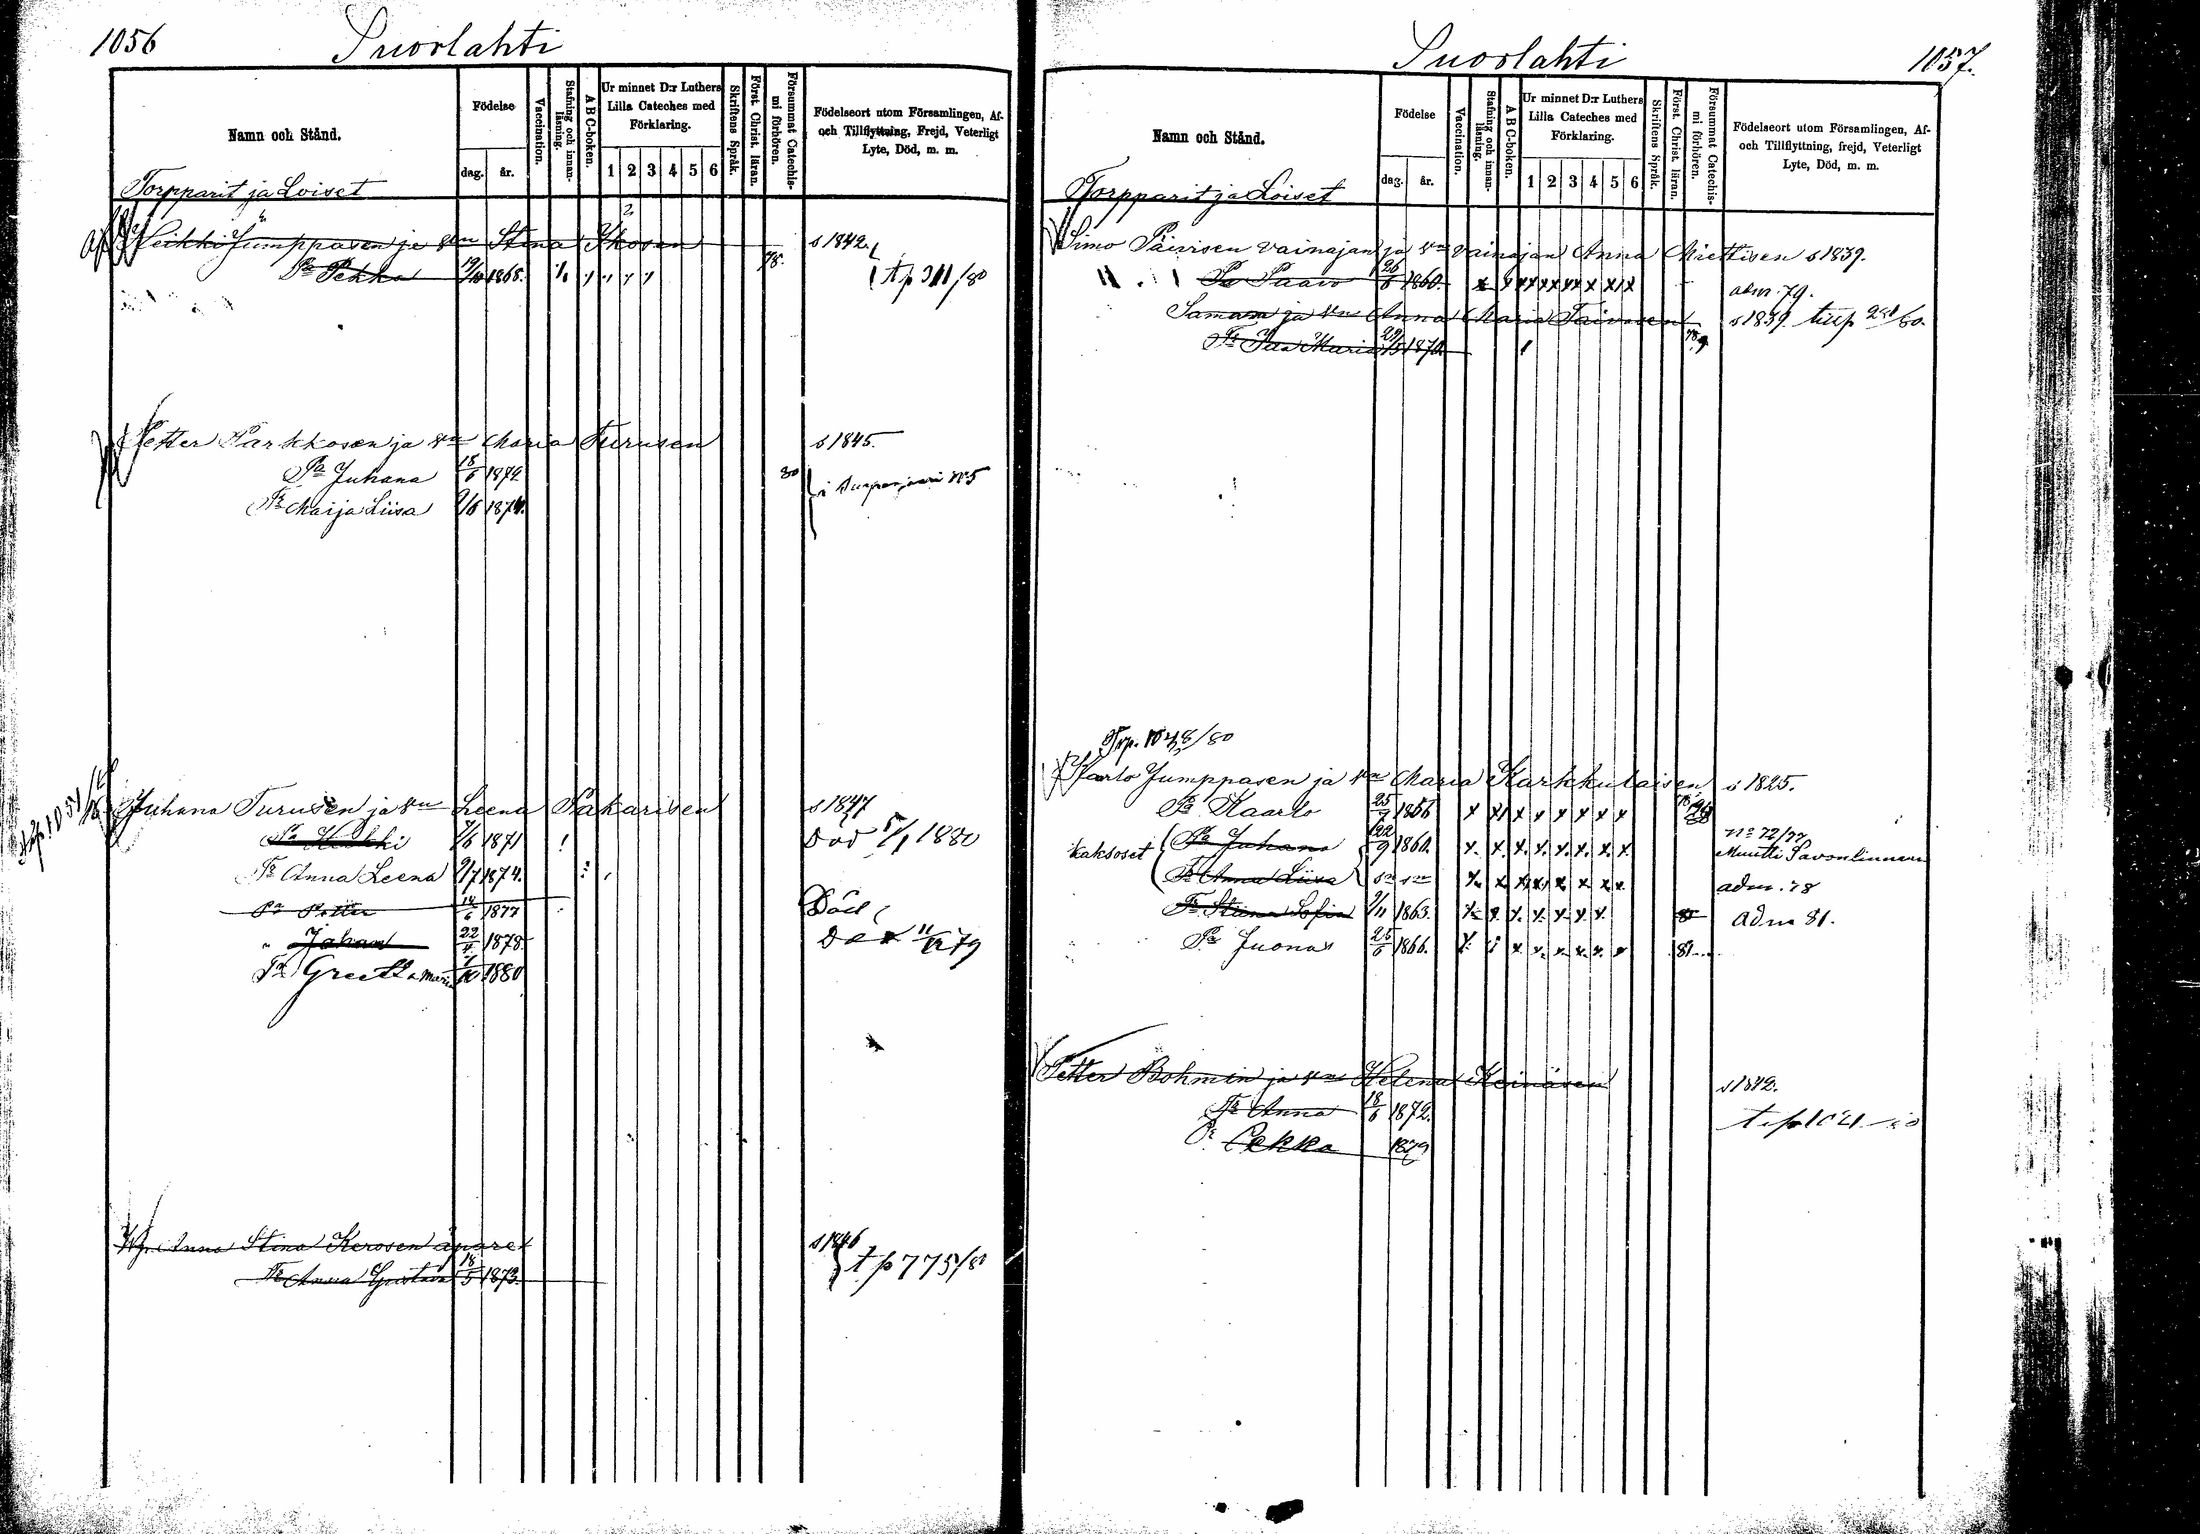 1056
Suorlahti
Namn och Stånd.
Födelse
dag.
år.
Vaccination.
Stafning och innanläsning.
A B C-boken.
Ur minnet D:r Luthers Lilla Cateches med Förklaring.
1 2 3 4 5 6
Skriftens Språk.
Först. Christ. läran.
Försummat Catechismi förhören.
Födelseort utom Församlingen, Af-
och Tillflyttning, Frejd, Veterligt
Lyte, Död, m. m.
Torpparit ja Loiset
Heikki Jumppasen ja vm Stina Ikosen s 1842.
Pa Pekka 1868. 78.
Petter Parkkosen ja vm Maria Turusen s 1845.
Pa Juhana 18/6 1872 80
Tr Maija Liisa 9/6 1874.
Juhana Turusen ja vm Leena Pakarisen s 1847
Pa Heikki 1871 Död 5/1 1880
Tr Anna Leena 9/7 1874.
Pa Petter 14/6 1877 Död
" Johan 22/4 1878 11/12 79
Greetta Maria 1880
Anna Stina Kerosen äpäret s 1846
Tr Anna Gustava 18/5 1873. t p 775/80
Suorlahti
1057.
Namn och Stånd.
Födelse
dag.
år.
Vaccination.
Stafning och innanläsning.
A B C-boken.
Ur minnet D:r Luthers Lilla Cateches med Förklaring.
1 2 3 4 5 6
Skriftens Språk.
Först. Christ. läran.
Försummat Catechismi förhören.
Födelseort utom Församlingen, Af-
och Tillflyttning, frejd, Veterligt
Lyte, Död, m. m.
Torpparit ja Loiset
Simo Päivisen vainajan ja vm vainajan Anna Miettisen s 1839.
Pa Paavo 26/6 1860. x x x x x x x x x adm. 79.
Saman ja vm Anna Maria Taivosen s 1839.
Maria 1870.
Trp. 1048/80
Kaarlo Jumppasen ja vm Maria Karkkulaisen s 1825.
Pa Kaarlo 25/9 1856 x x x x x x x x
kaksoset Pa Juhana 22/9 1860. x x x x x x x x No 72/77 Muutti Savonlinnaan
Tr Anna Liisa x x x x x x x x adm. 78
Tr Stiina Sofia 9/11 1863. x x x x x x x adm 81.
Pa Juonas 25/6 1866. x x x x x x x 81
Petter Bohmin ja vm Helena Keinäsen s 1842.
Tr Anna 18/6 1872.
Pr Pekka 1879